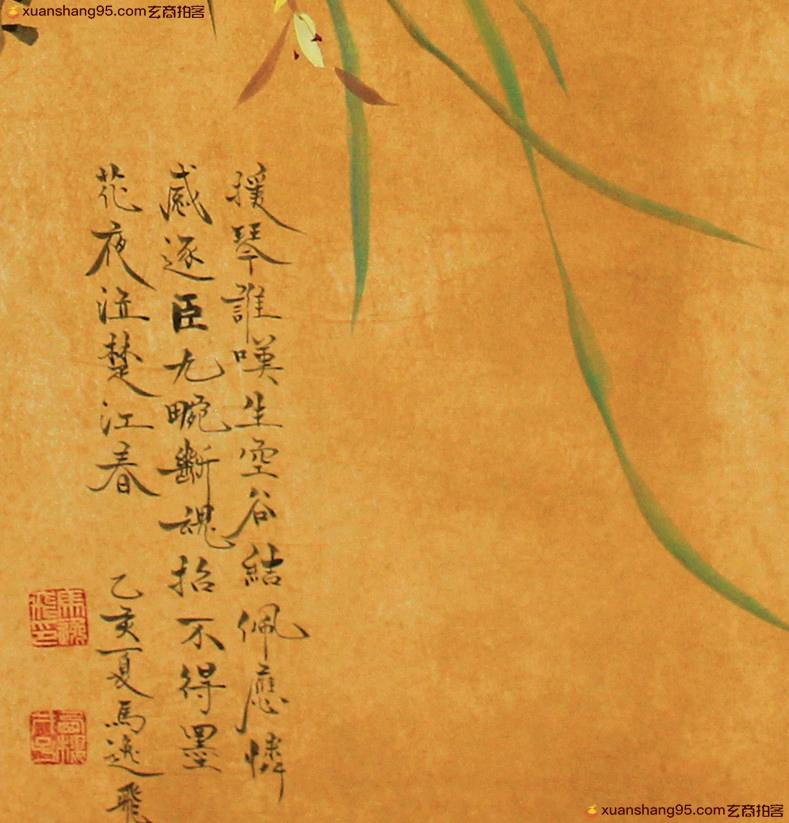 xuanshang95.com玄商拍客
援琴誰嘆生空谷結佩應憐
感逐臣九畹斷魂招不得墨
花夜泣楚江春
乙亥夏馬逸飛
xuanshang95.com玄商拍客